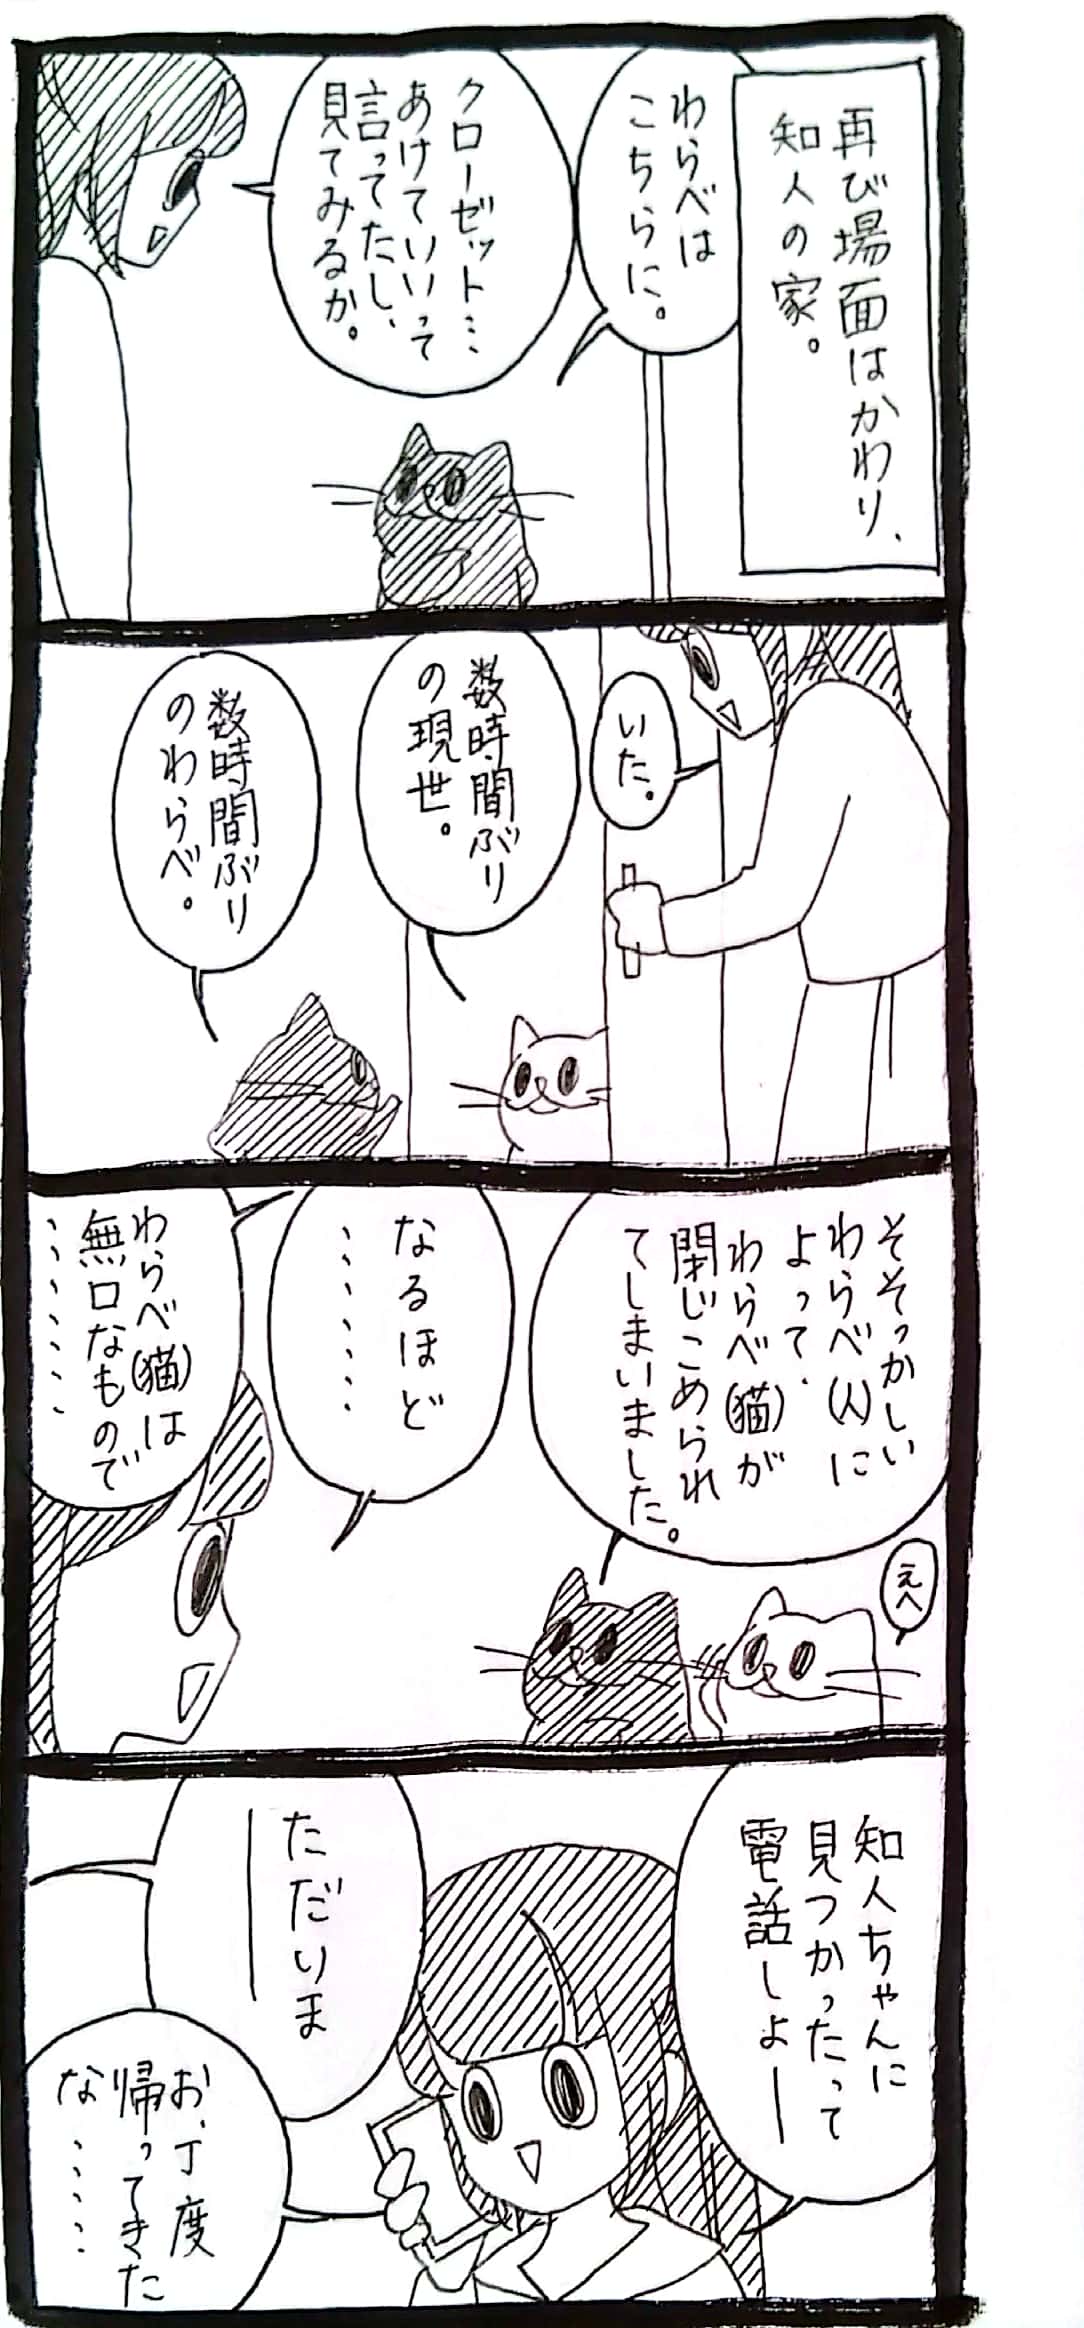 再び場面はかわり、
知人の家。
わらべは
こちらに。
クローゼット…
あけていいって
言ってたし、
見てみるか。
いた。
数時間ぶり
の現世。
数時間ぶり
のわらべ。
そそっかしい
わらべ(人)に
よって、
わらべ(猫)が
閉じこめられ
てしまいました。
えへ
なるほど
……
わらべ(猫)は
無口なもので
……
知人ちゃんに
見つかったって
電話しよー
ただいま
ー
お、丁度
帰ってきた
な……